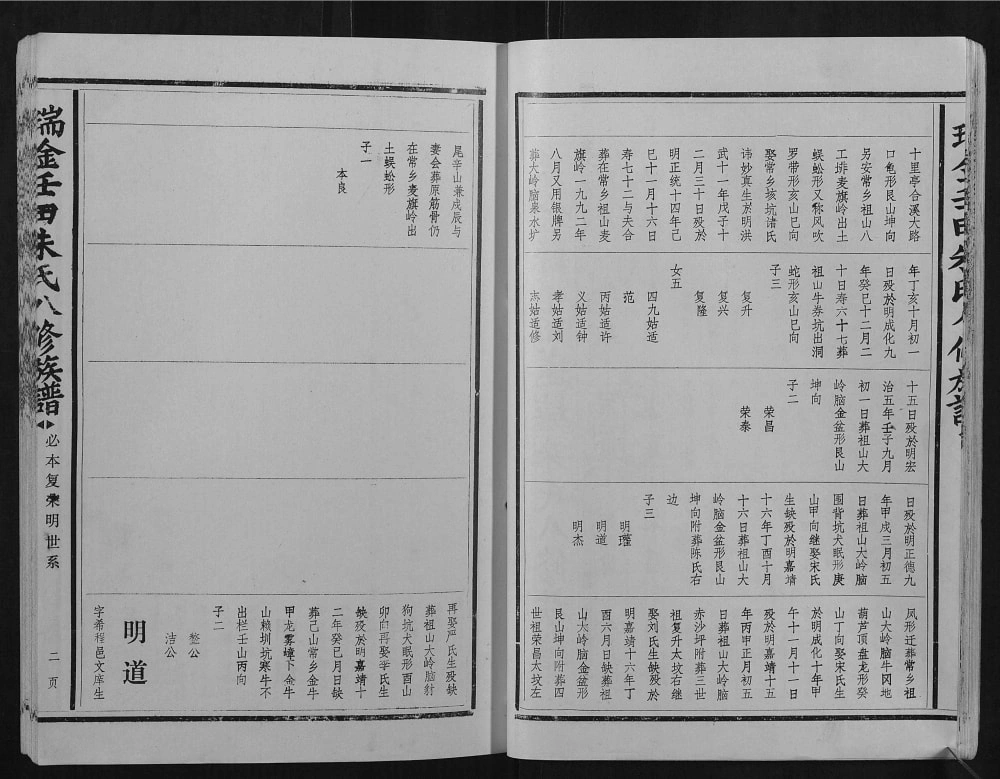 十里亭合溪大路
口龟形艮山坤向
另安常乡祖山八
工排麦旗岭出土
蜈蚣形又称风吹
罗带形亥山巳向
娶常乡孩坑诸氏
讳妙真生於明洪
武十一年戊子十
二月三十日殁於
明正统十四年己
巳十一月十六日
寿七十二与夫合
葬在常乡祖山麦
旗岭一九九二年
八月又用银牌另
葬大岭脑泉水圹
年丁亥十月初一
日殁於明成化九
年癸巳十二月二
十日寿六十七葬
祖山牛券坑出洞
蛇形亥山巳向
子三
复升
复兴
复隆
女五
四九姑适
范
丙姑适许
义姑适钟
孝姑适刘
志姑适修
十五日殁於明宏
治五年壬子九月
初一日葬祖山大
岭脑金盆形艮山
坤向
子二
荣昌
荣泰
日殁於明正德九
年甲戌三月初五
日葬祖山大岭脑
围背坑犬眠形庚
山甲向继娶宋氏
生缺殁於明嘉靖
十六年丁酉十月
十六日葬祖山大
岭脑金盆形艮山
坤向附葬陈氏右
边
子三
明瓘
明道
明杰
凤形迁葬常乡祖
山大岭脑牛冈地
葫芦顶盘龙形癸
山丁向娶宋氏生
於明成化十年甲
午十一月十一日
殁於明嘉靖十五
年丙申正月初五
日葬祖山大岭脑
赤沙坪附葬三世
祖复升太坟右继
娶刘氏生缺殁於
明嘉靖十六年丁
酉六月日缺葬祖
山大岭脑金盆形
艮山坤向附葬四
世祖荣昌太坟左
尾辛山兼戌辰与
妻会葬原筋骨仍
在常乡麦旗岭出
土蜈蚣形
子一
本良
再娶严氏生殁缺
葬祖山大岭脑射
狗坑犬眠形酉山
卯向再娶李氏生
缺殁於明嘉靖十
二年癸巳月日缺
葬己山常乡金牛
甲龙雾嶂下金牛
山赖圳坑寒牛不
出栏壬山丙向
子二
洁公
明道
字希程邑文庠生
瑞金壬申朱氏八修族譜
必本复荣明世系
二页